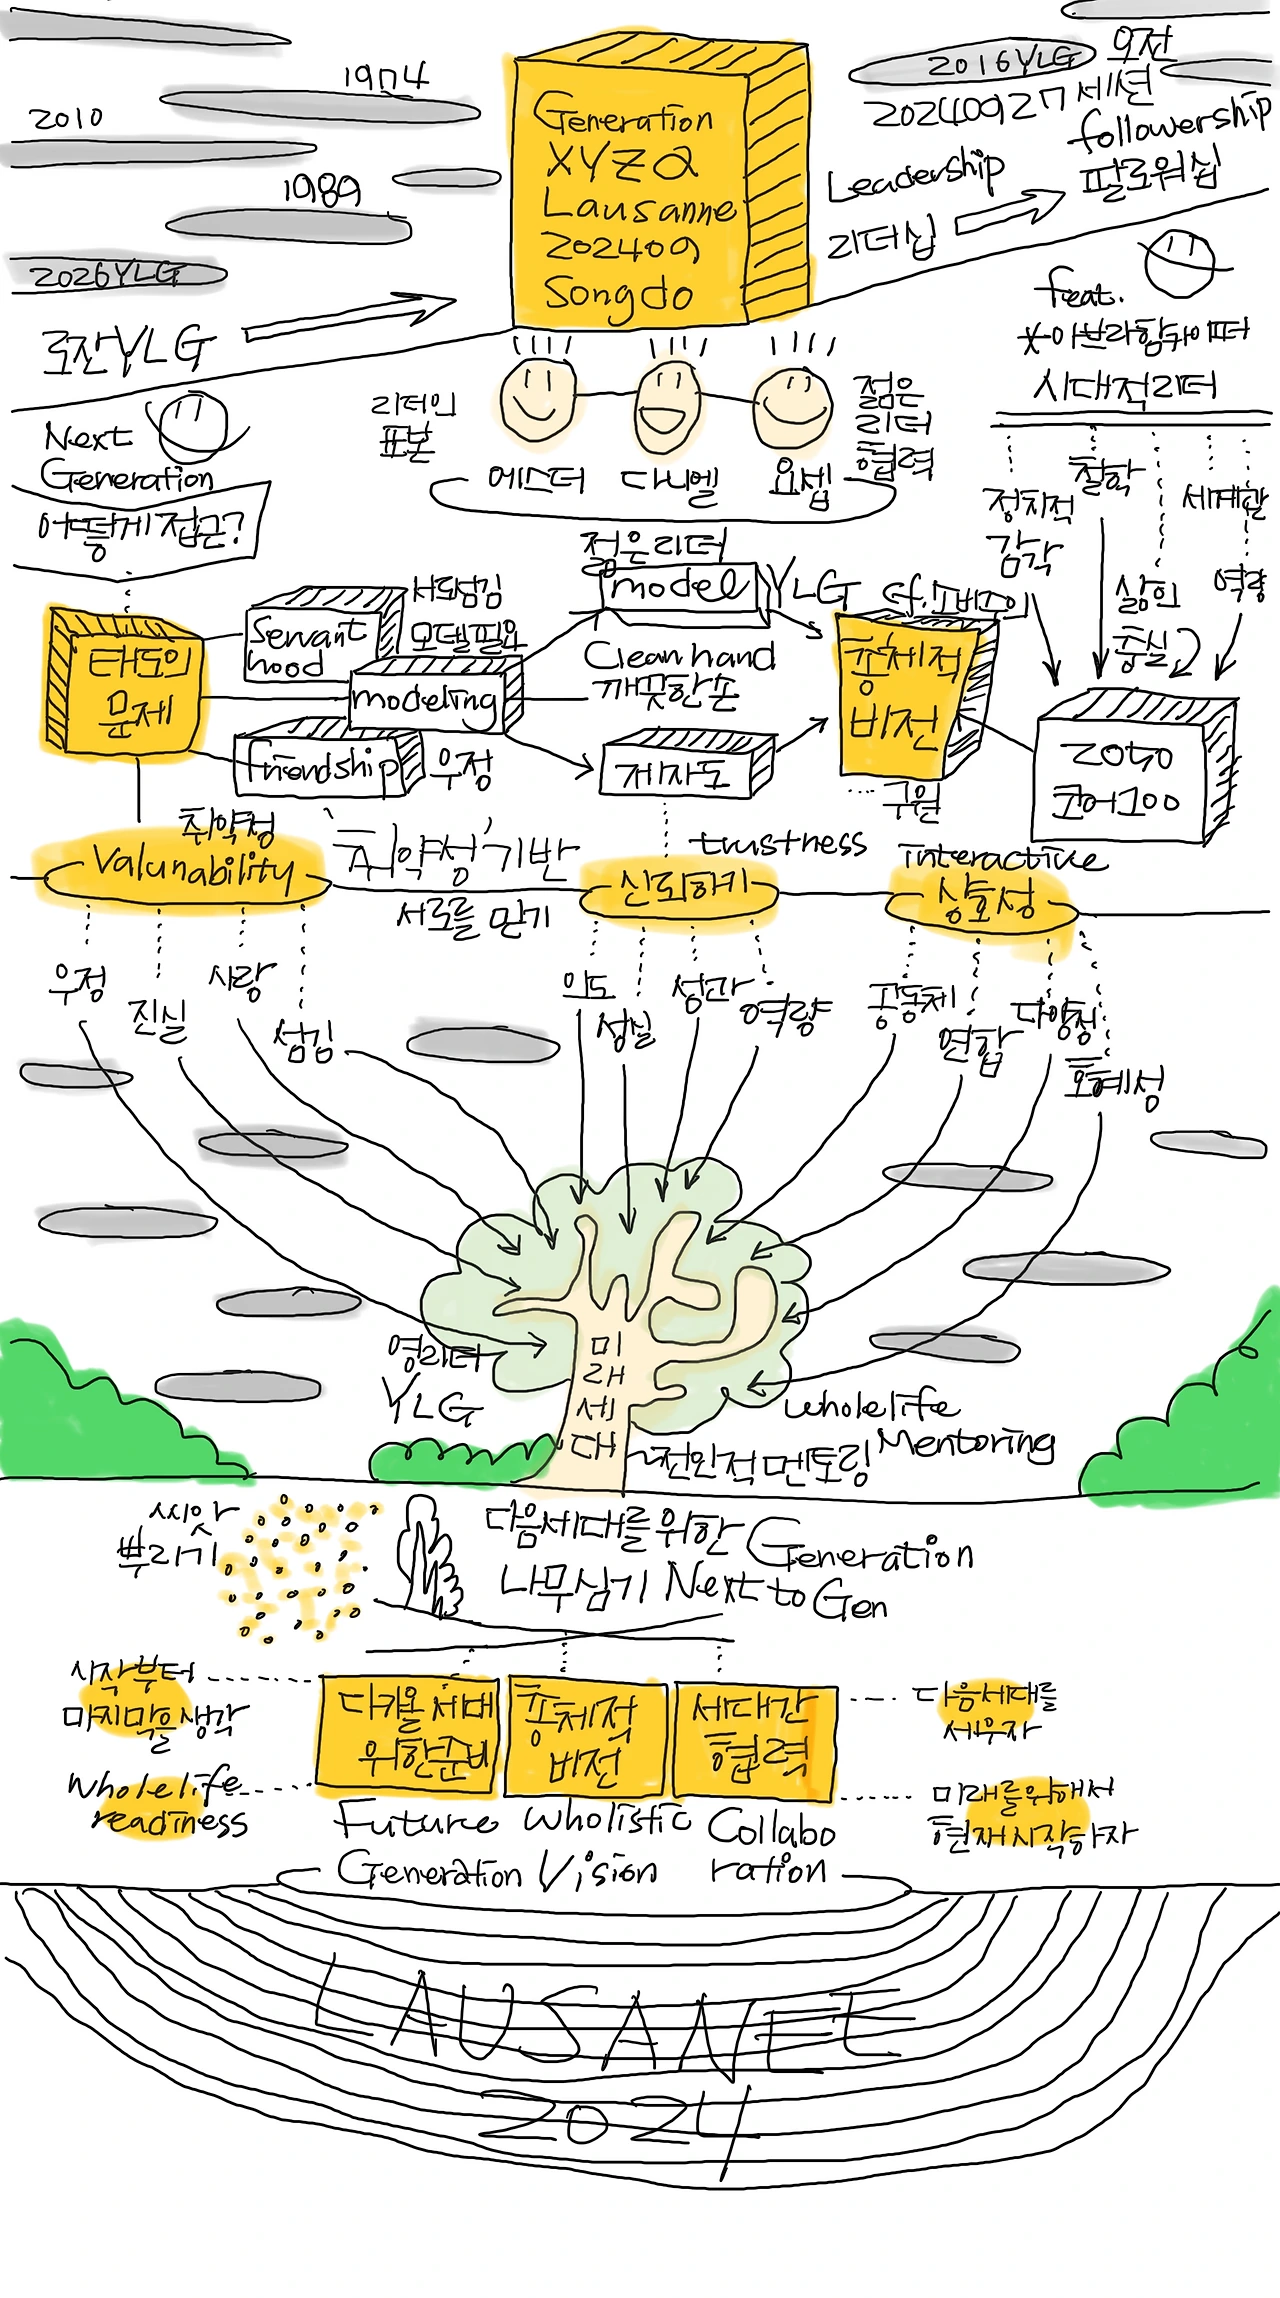 1974
2010
1989
2026YLG
로잔YLG
Generation
XYZα
Lausanne
202409
Songdo
2016YLG
오전
20240927 세션
followership
Leadership
팔로워십
리더십
feat.
*아브라함카이퍼
시대적리더
정치적
감각
철학
삶의
충실
세계관
역량
Next
Generation
어떻게 접근?
리더의
표본
젊은
리더
협력
에스더
다니엘
요셉
젊은리더
model
YLG
태도의
문제
Servant
hood
서로섬김
모델필요
modeling
friendship
우정
Clean hand
깨끗한 손
제자도
총체적
비전
구원
2050
코어100
취약점
Valunability
'취약성'기반
서로를 믿기
trustness
신뢰하기
interactive
상호성
우정
진실
사랑
섬김
의도
성실
성과
역량
공동체
연합
다양성
호혜성
영리더
YLG
미
래
세
대
wholelife
Mentoring
전인적멘토링
씨앗
뿌리기
다음세대를위한
Generation
나무심기
Next to
Gen
시작부터
마지막을생각
wholelife
readiness
다가올 세대
위한준비
총체적
비전
세대간
협력
다음세대를
세우자
미래를위해서
현재시작하자
Future
Generation
wholistic
Vision
Collabo
ration
LAUSANEE
2024